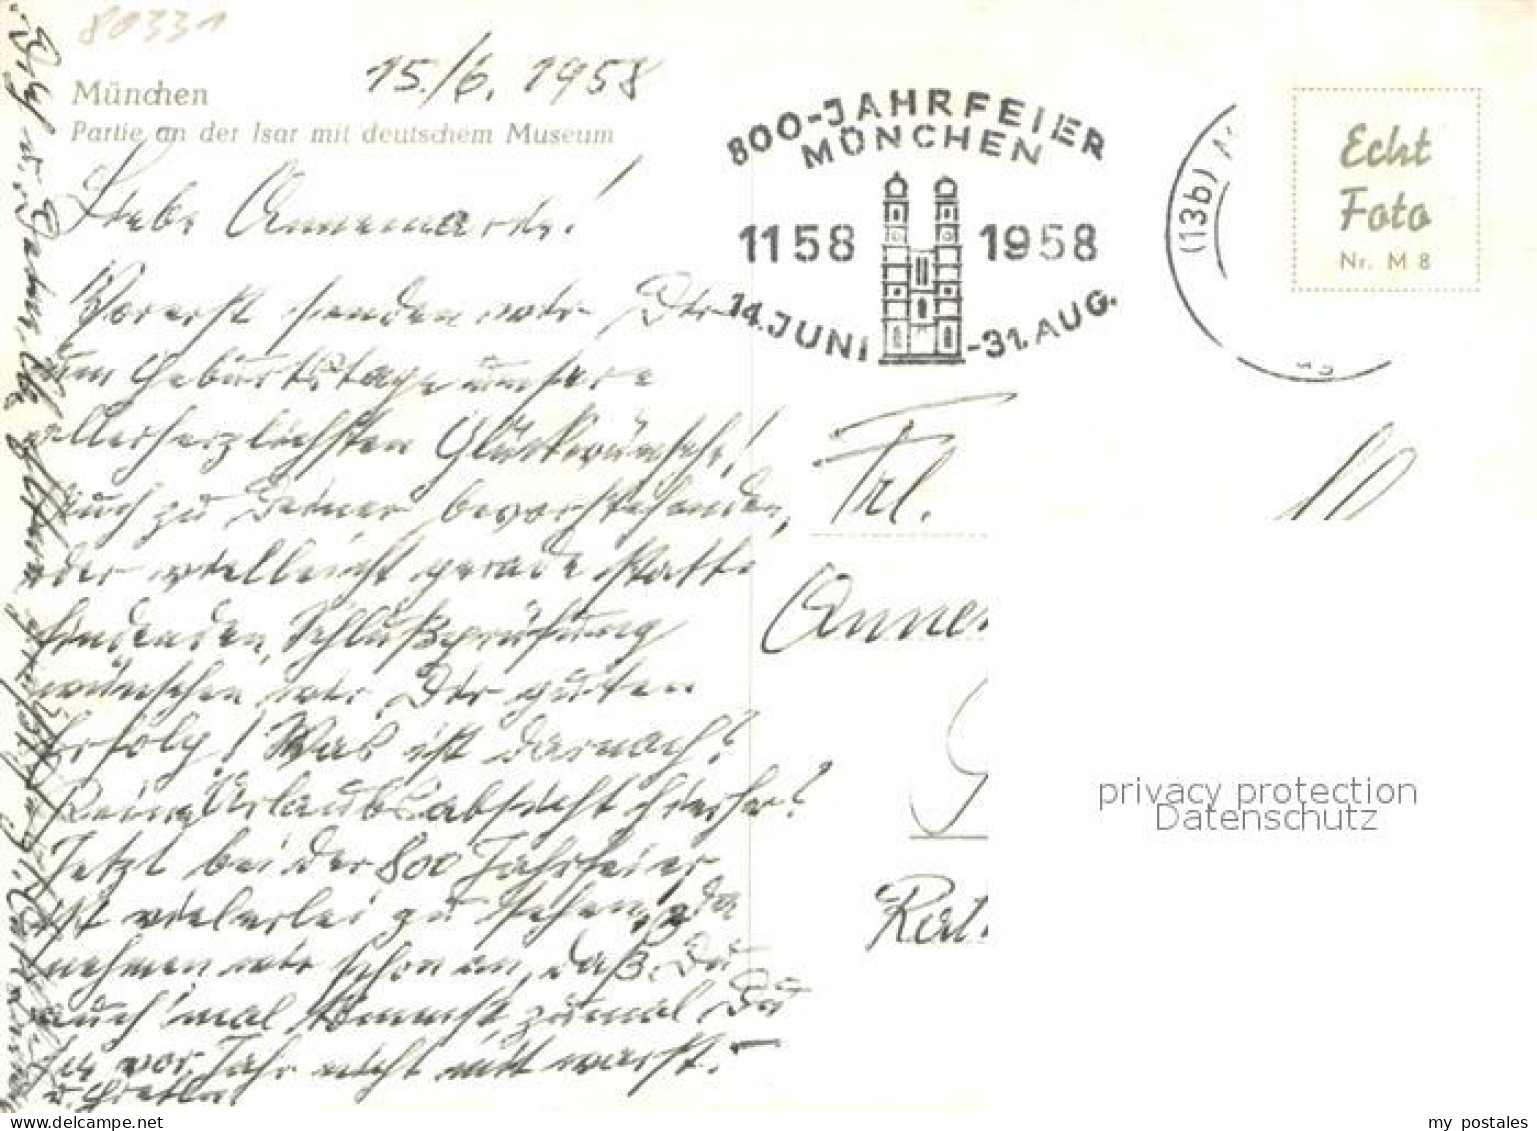 80331
15./6. 1958
München
Partie an der Isar mit deutschem Museum
Liebe Annemarie!
Vorerst senden wir Dir
zum Geburtstage unsere
allerherzlichsten Glückwünsche!
Auch zu Deiner bevorstehenden,
oder vielleicht gerade statt-
findenden, Schlußprüfung
wünschen wir Dir guten
Erfolg! Was ist darnach?
Keine Urlaubsabsicht hierher?
Jetzt bei der 800 Jahrfeier
ist vielerlei zu sehen, da
nehmen wir schon an, daß Du
auch 'mal kommst, zumal Du
ja vor. Jahr nicht mit warst. –
800-JAHRFEIER
MÜNCHEN
1158 1958
14. JUNI - 31. AUG.
(13b)
Echt
Foto
Nr. M 8
Frl.
privacy protection
Datenschutz
my postales